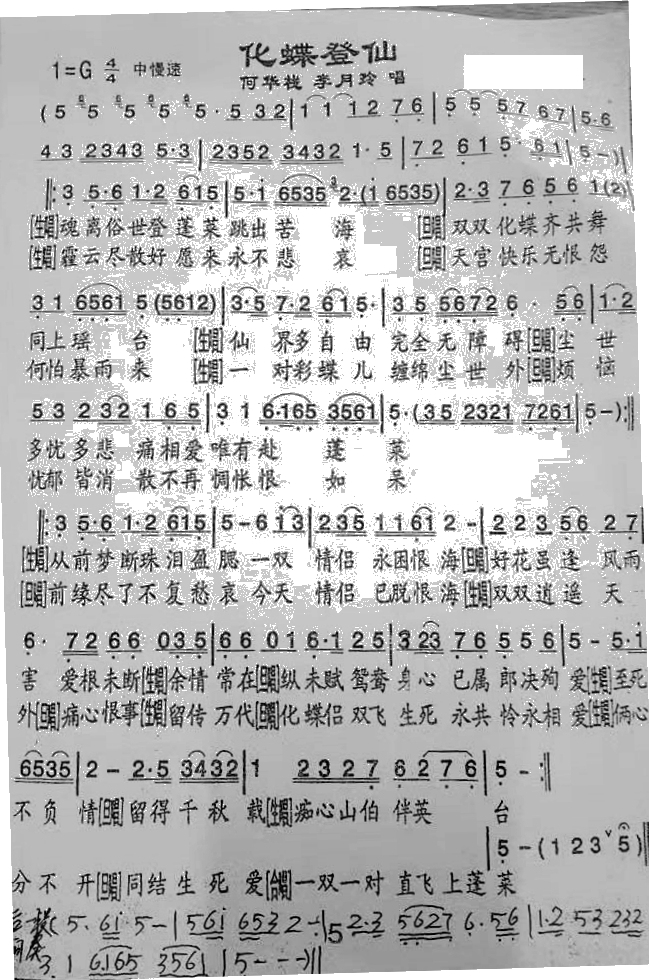 化蝶登仙
1=G 4/4 中慢速 何华栈 李月玲 唱
(5 5 5 5 5· 5 32|1 1 12 76|5 5 57 67|5·6
43 2343 5·3|2352 3432 1·5|72 61 5·61|5-)|
‖:3 5·6 1·2 615|5·1 6535 2·(1 6535)|2·3 76 56 1(2)|
[生唱]魂离俗世登蓬莱跳出苦 海 [旦唱]双双化蝶齐共舞
[生唱]霾云尽散好愿来永不悲 哀 [旦唱]天宫快乐无恨怨
31 6561 5(5612)|3·5 7·2 61 5·|35 5672 6· 56|1·2
同上瑶 台 [生唱]仙 界多自由 完全无障碍[旦唱]尘世
何怕暴雨来 [生唱]一 对彩蝶儿 缠绵尘世外[旦唱]烦恼
53 232 165|31 6·165 3561|5·(35 2321 7261|5-):‖
多忧多悲 痛相爱唯有赴 蓬 莱
忧郁皆消 散不再惆怅恨 如 呆
‖:3 5·6 1·2 615|5-6 13|235 1161 2-|223 56 27|
[生唱]从前梦断珠泪盈腮一双 情侣 永困恨海[旦唱]好花虽逢 风雨
[旦唱]前缘尽了不复愁哀今天 情侣 已脱恨海[生唱]双双逍遥天
6· 7266 035|66 01 6·1 25|323 76 556|5-5·1
害 爱根未断[生唱]余情常在[旦唱]纵未赋鸳鸯身心 已属郎决殉爱[生唱]至死
外[旦唱]痛心恨事[生唱]留传万代[旦唱]化蝶侣双飞生死 永共怜永相爱[生唱]俩心
6535|2-2·5 3432|1 2327 6276|5-:‖
不负情[旦唱]留得千秋载[生唱]痴心山伯伴英 台
5-(123 5)‖
分不开[旦唱]同结生死爱[合唱]一双一对直飞上蓬莱
(5·61 5-|561 653 2-|5 2·3 5627 6·56|1·2 53 232
3·1 6165 3561|5--)‖